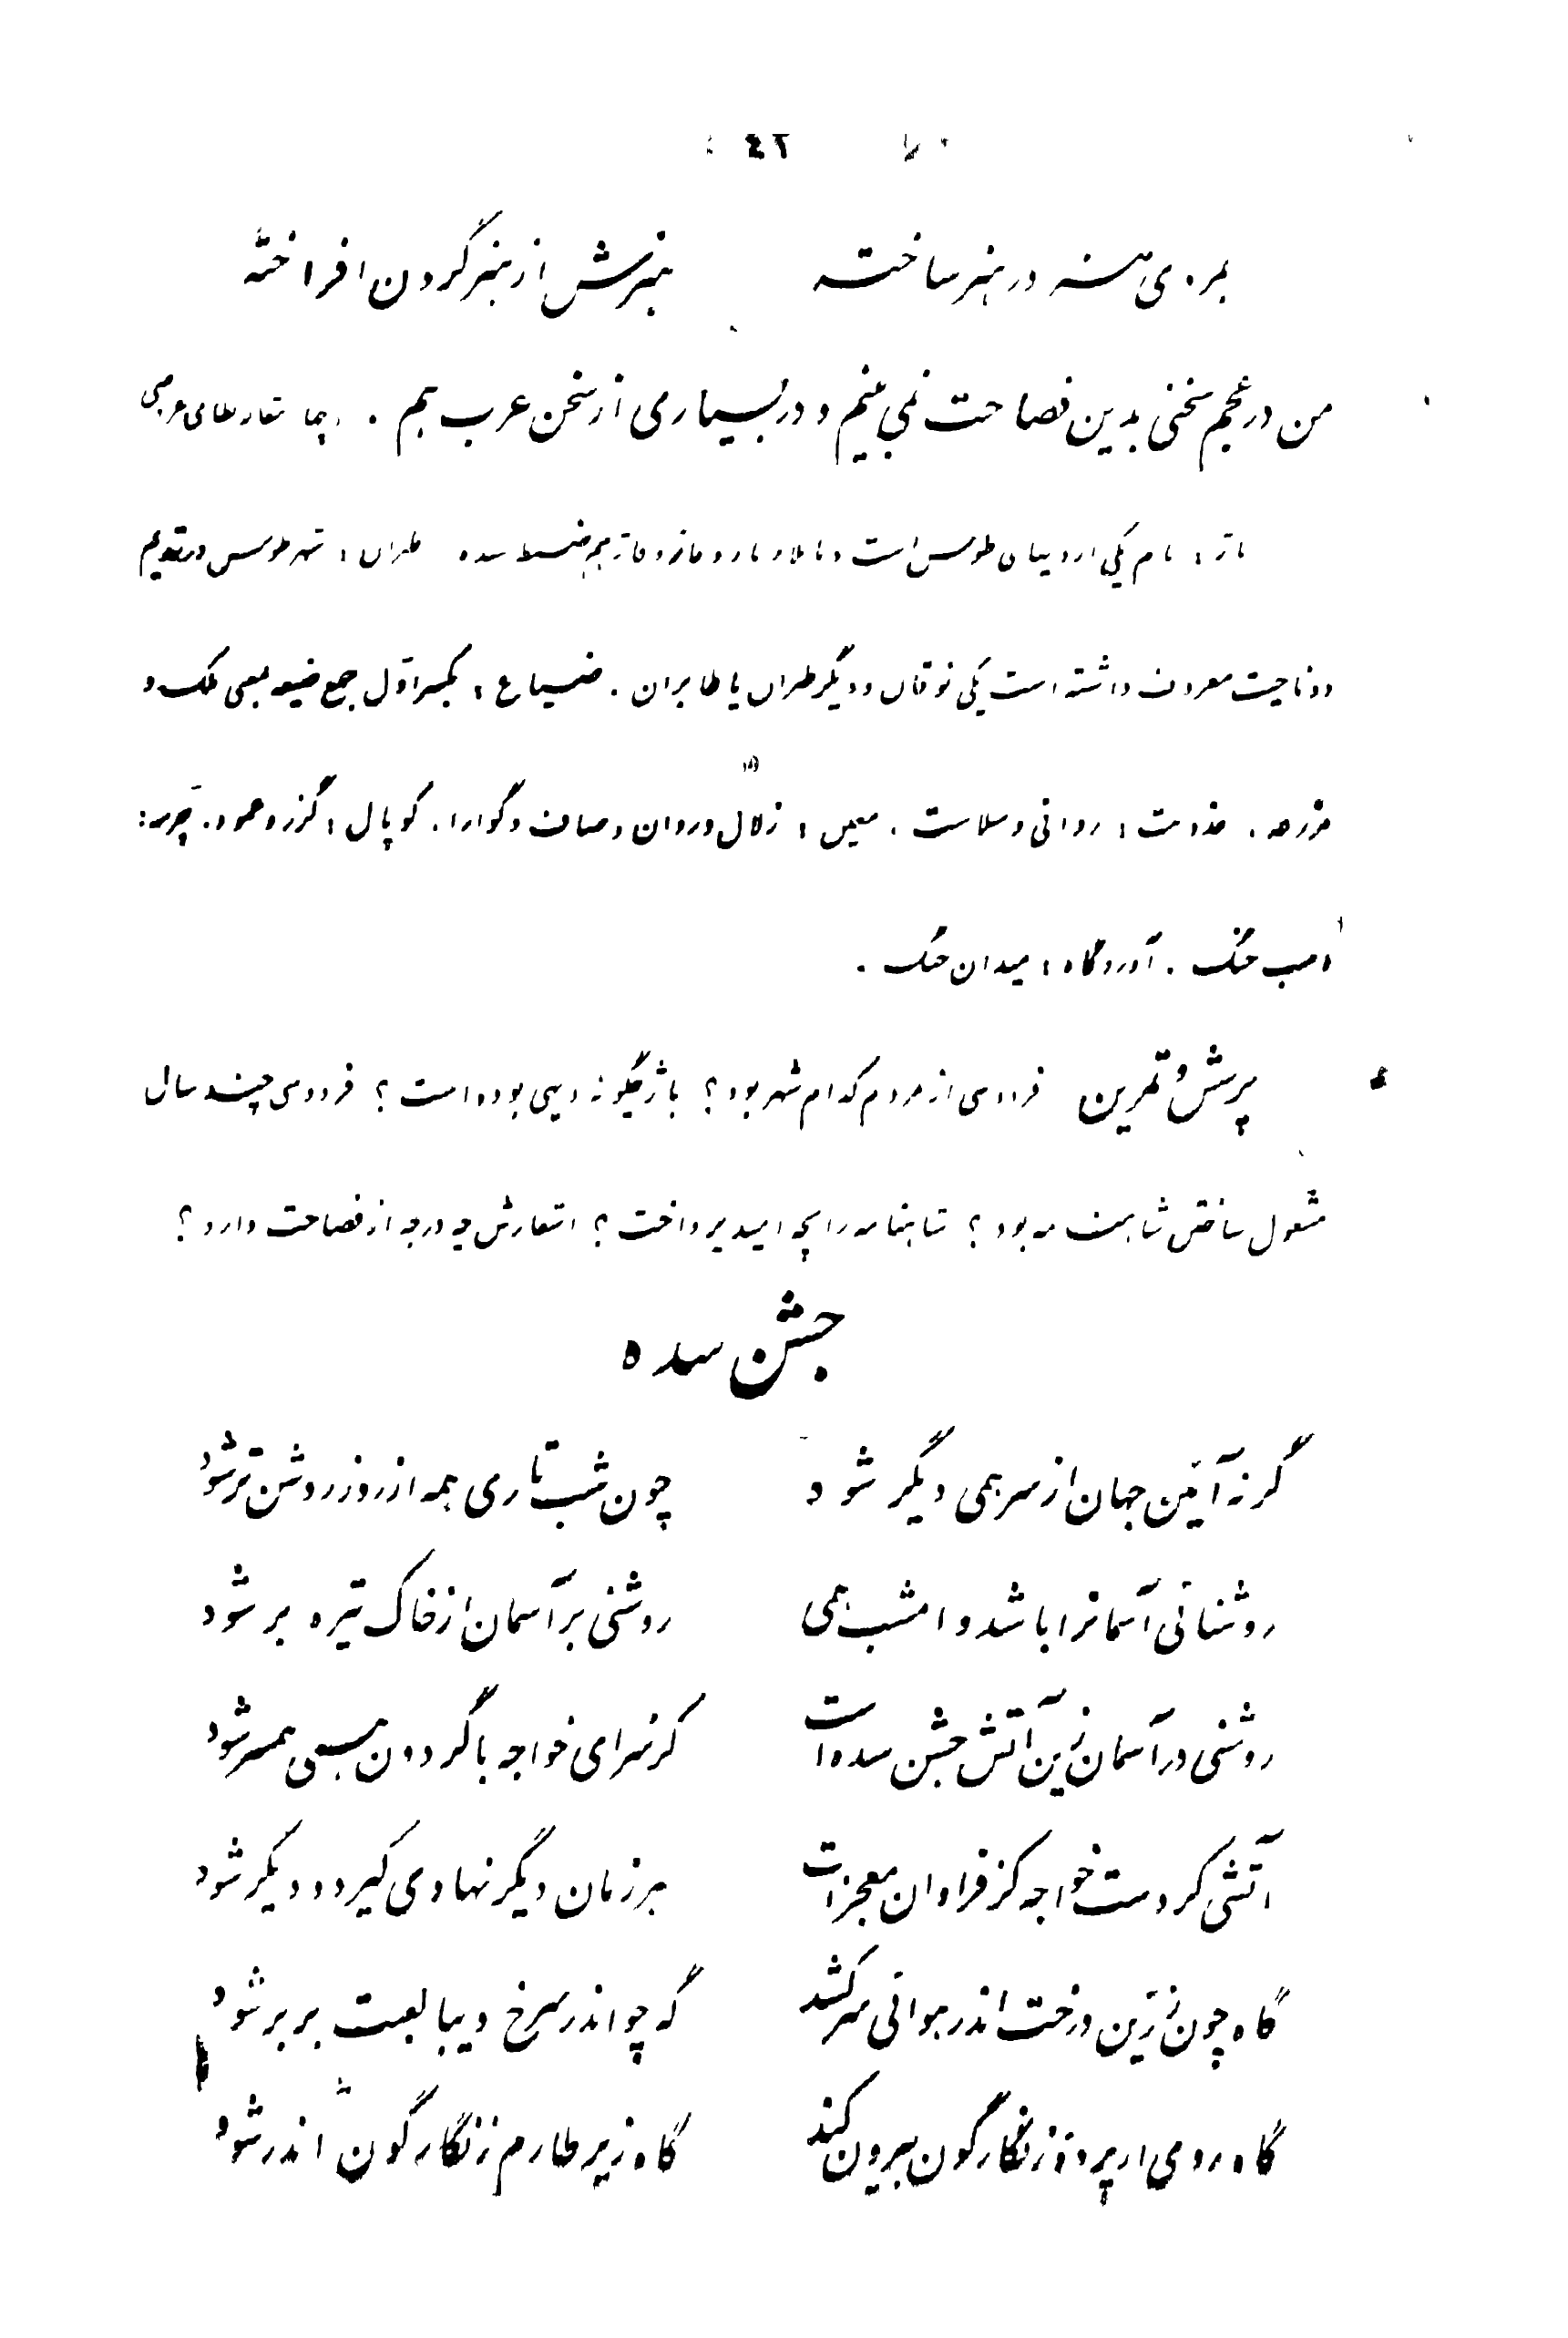 ٤٢
هنر در هنر ساخته هنرش از هنر گردن افراخته
من در عجم سخنی بدین فصاحت نمی‌بینم و در بسیاری از سخن عرب هم . چهار مقاله نظامی عروضی
باژ : نام یکی از دیهای طوس است و ضبط شده طبران : شهر طوس در قدیم
دو ناحیت معروف داشته است یکی نوقان و دیگر طبران یا طابران . ضیاع : بکسر اول جمع ضیعه بمعنی ملک و
مزرعه . عذوبت : روانی و سلاست . معین : زلال و روان و صاف و گوارا . کوپال : گرز و عمود . چرمه :
اسب جنگ . آوردگاه : میدان جنگ .
پرسش و تمرین فردوسی از مردم کدام شهر بود ؟ باژ چگونه دیهی بوده است ؟ فردوسی چند سال
مشغول ساختن شاهنامه بود ؟ شاهنامه را بچه امید پرداخت ؟ اشعارش چه درجه از فصاحت دارد ؟
جشن سده
گر نه آئین جهان از سر همی دیگر شود چون شب تاری همه از روز روشن‌تر شود
روشنائی آسمانرا باشد و امشب همی روشنی بر آسمان از خاک تیره بر شود
روشنی در آسمان زین آتش جشن سده است کز سرای خواجه با گردون همی همسر شود
آتشی کردست خواجه کز فراوان معجزات هر زمان دیگر نهادی گیرد و دیگر شود
گاه چون زرین درخت اندر هوائی سر کشد گه چو اندر سرخ دیبا لعبت بربر شود
گاه روی از پرده زنگارگون بیرون کند گاه زیر طارم زنگارگون اندر شود